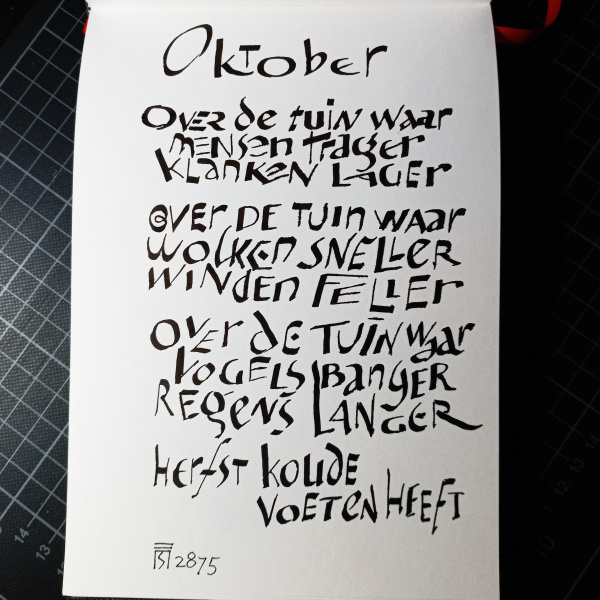 Oktober
Over de tuin waar
mensen trager
klanken lager
over de tuin waar
wolken sneller
winden feller
over de tuin waar
vogels banger
regens langer
herfst koude
voeten heeft
2875
14
13
12
11
10
14
13
12